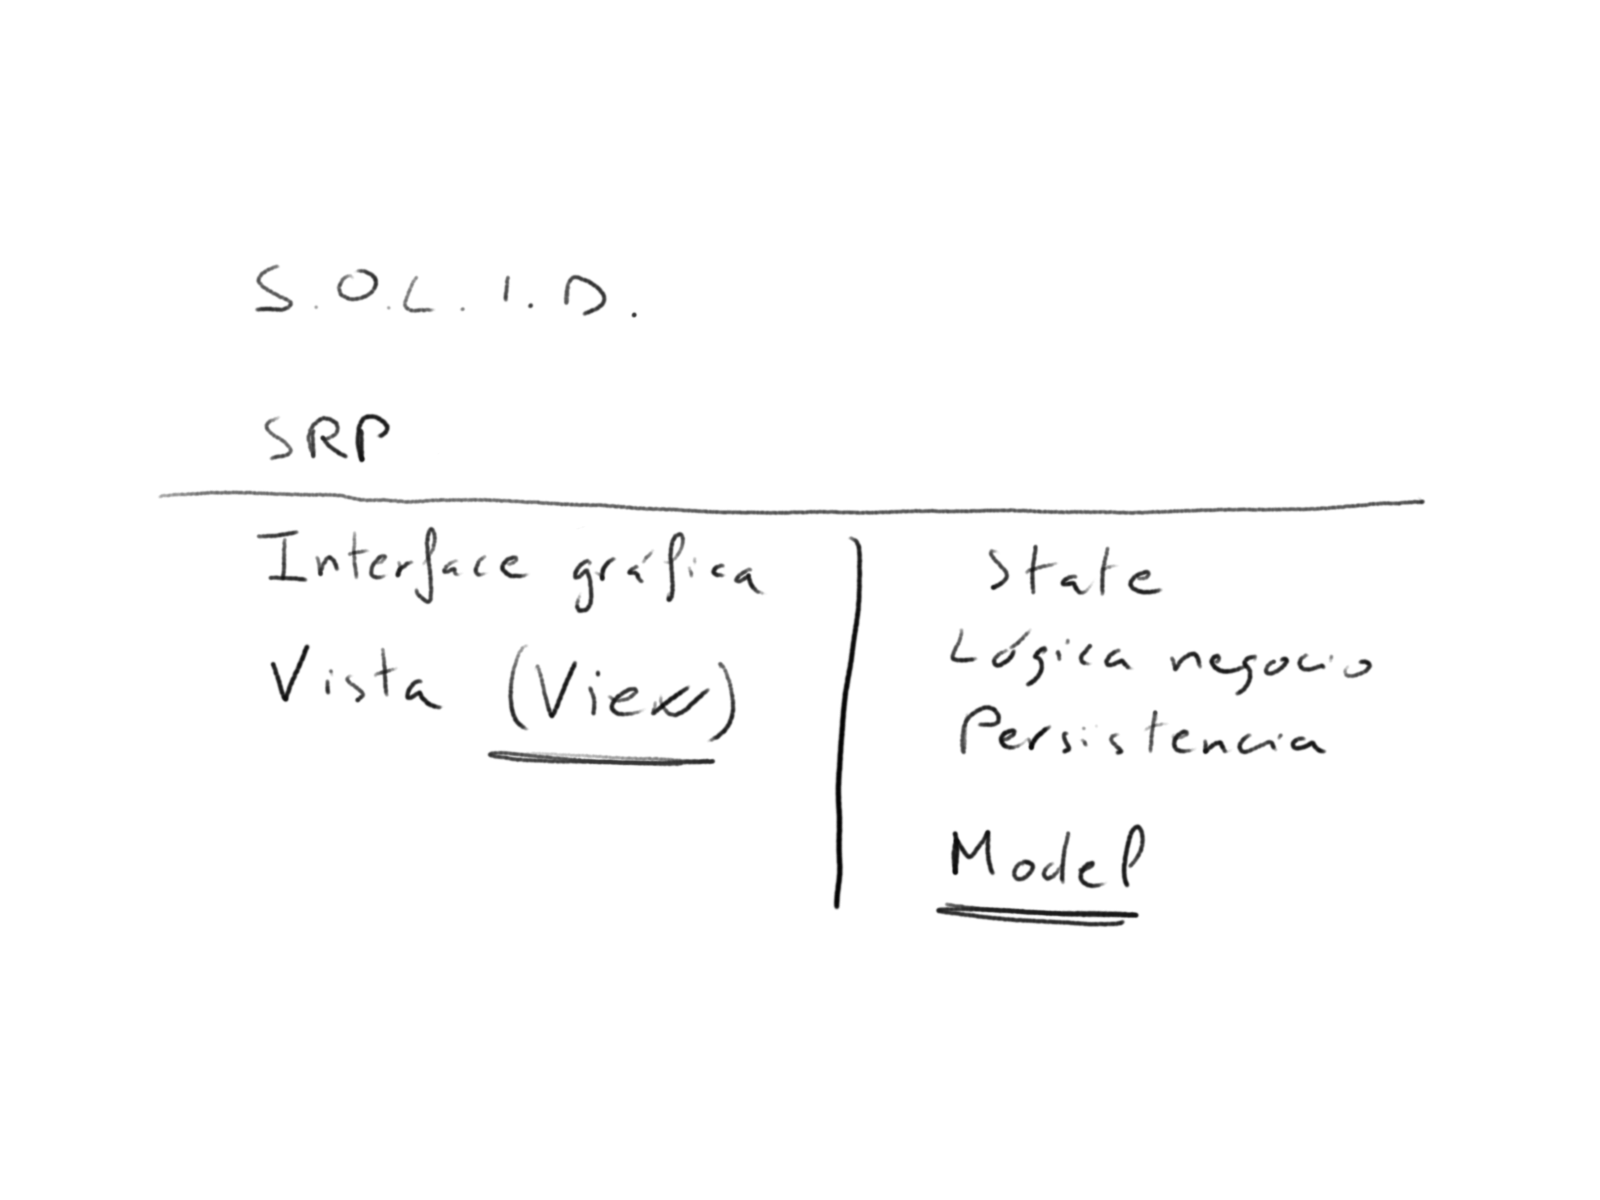 S.O.L.I.D.
SRP
Interface gráfica
Vista (View)
State
Lógica negocio
Persistencia
Model